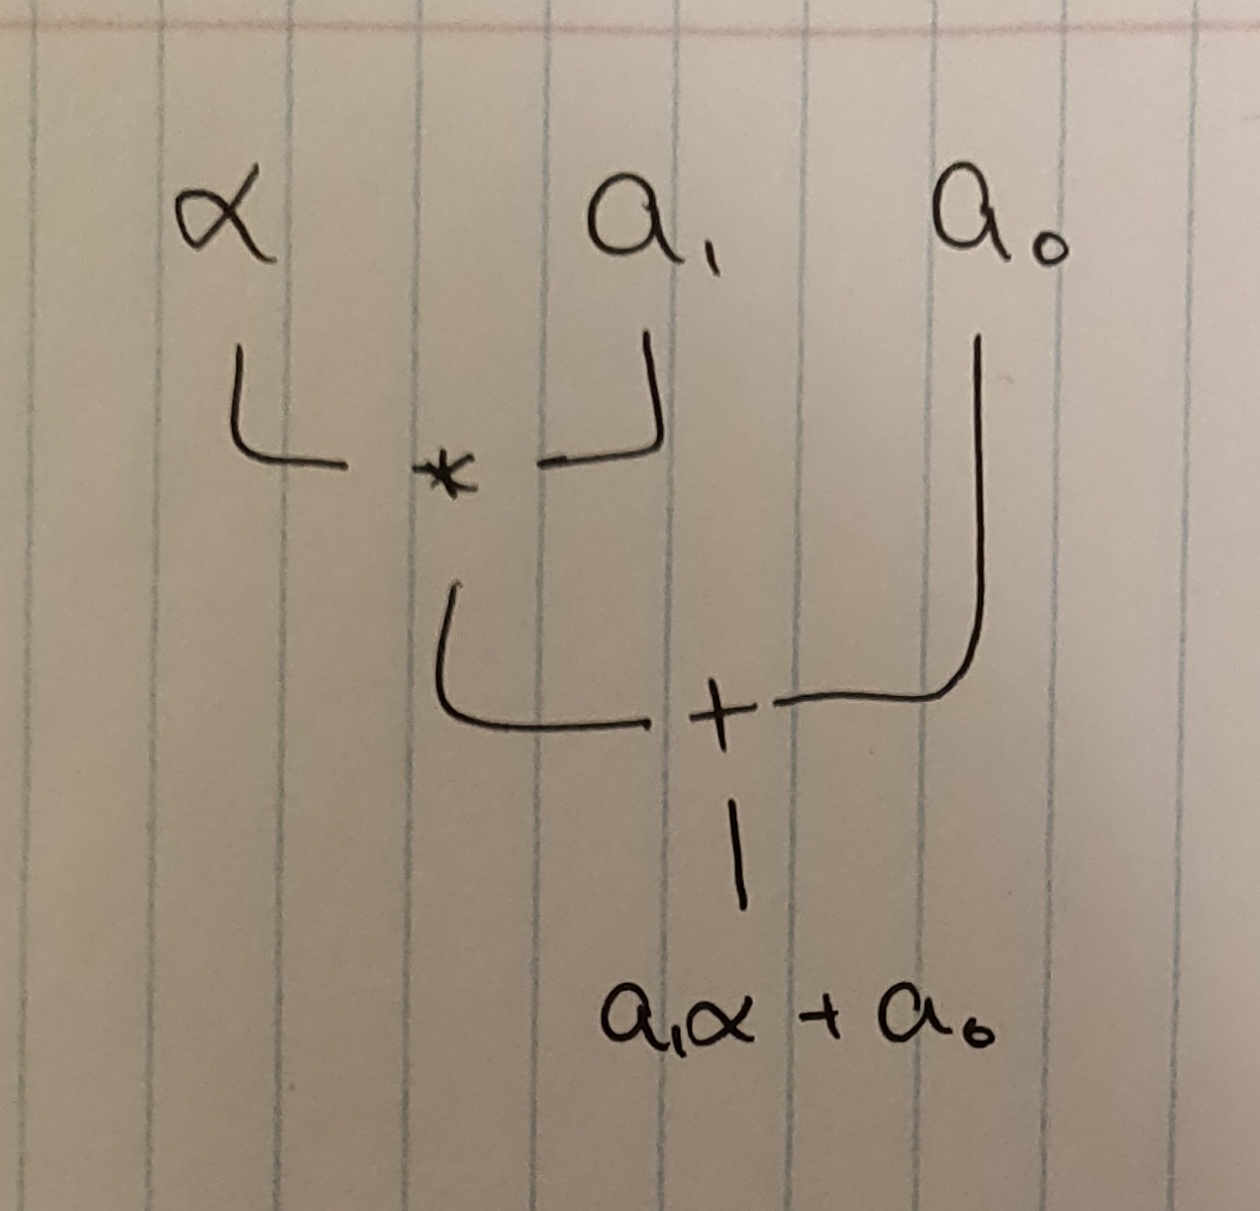 α a₁ a₀
*
+
a₁α + a₀